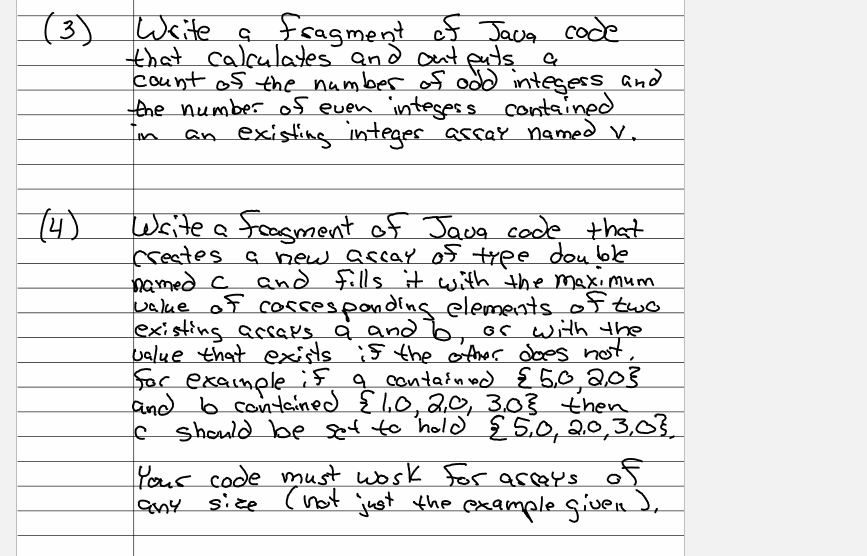 (3) Write a fragment of Java code
that calculates and outputs a
count of the number of odd integers and
the number of even integers contained
in an existing integer array named v.
(4) Write a fragment of Java code that
creates a new array of type double
named c and fills it with the maximum
value of corresponding elements of two
existing arrays a and b, or with the
value that exists if the other does not.
For example if a contained {5.0, 2.0}
and b contained {1.0, 2.0, 3.0} then
c should be set to hold {5.0, 2.0, 3.0}.
Your code must work for arrays of
any size (not just the example given).